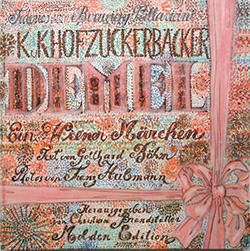 K.u.K. HOFZUCKERBÄCKER
DEMEL
Ein Wiener Märchen
Text von Gotthard Böhm
Photos von Franz Hubmann
Herausgegeben
von Christian Brandstätter
Molden Edition